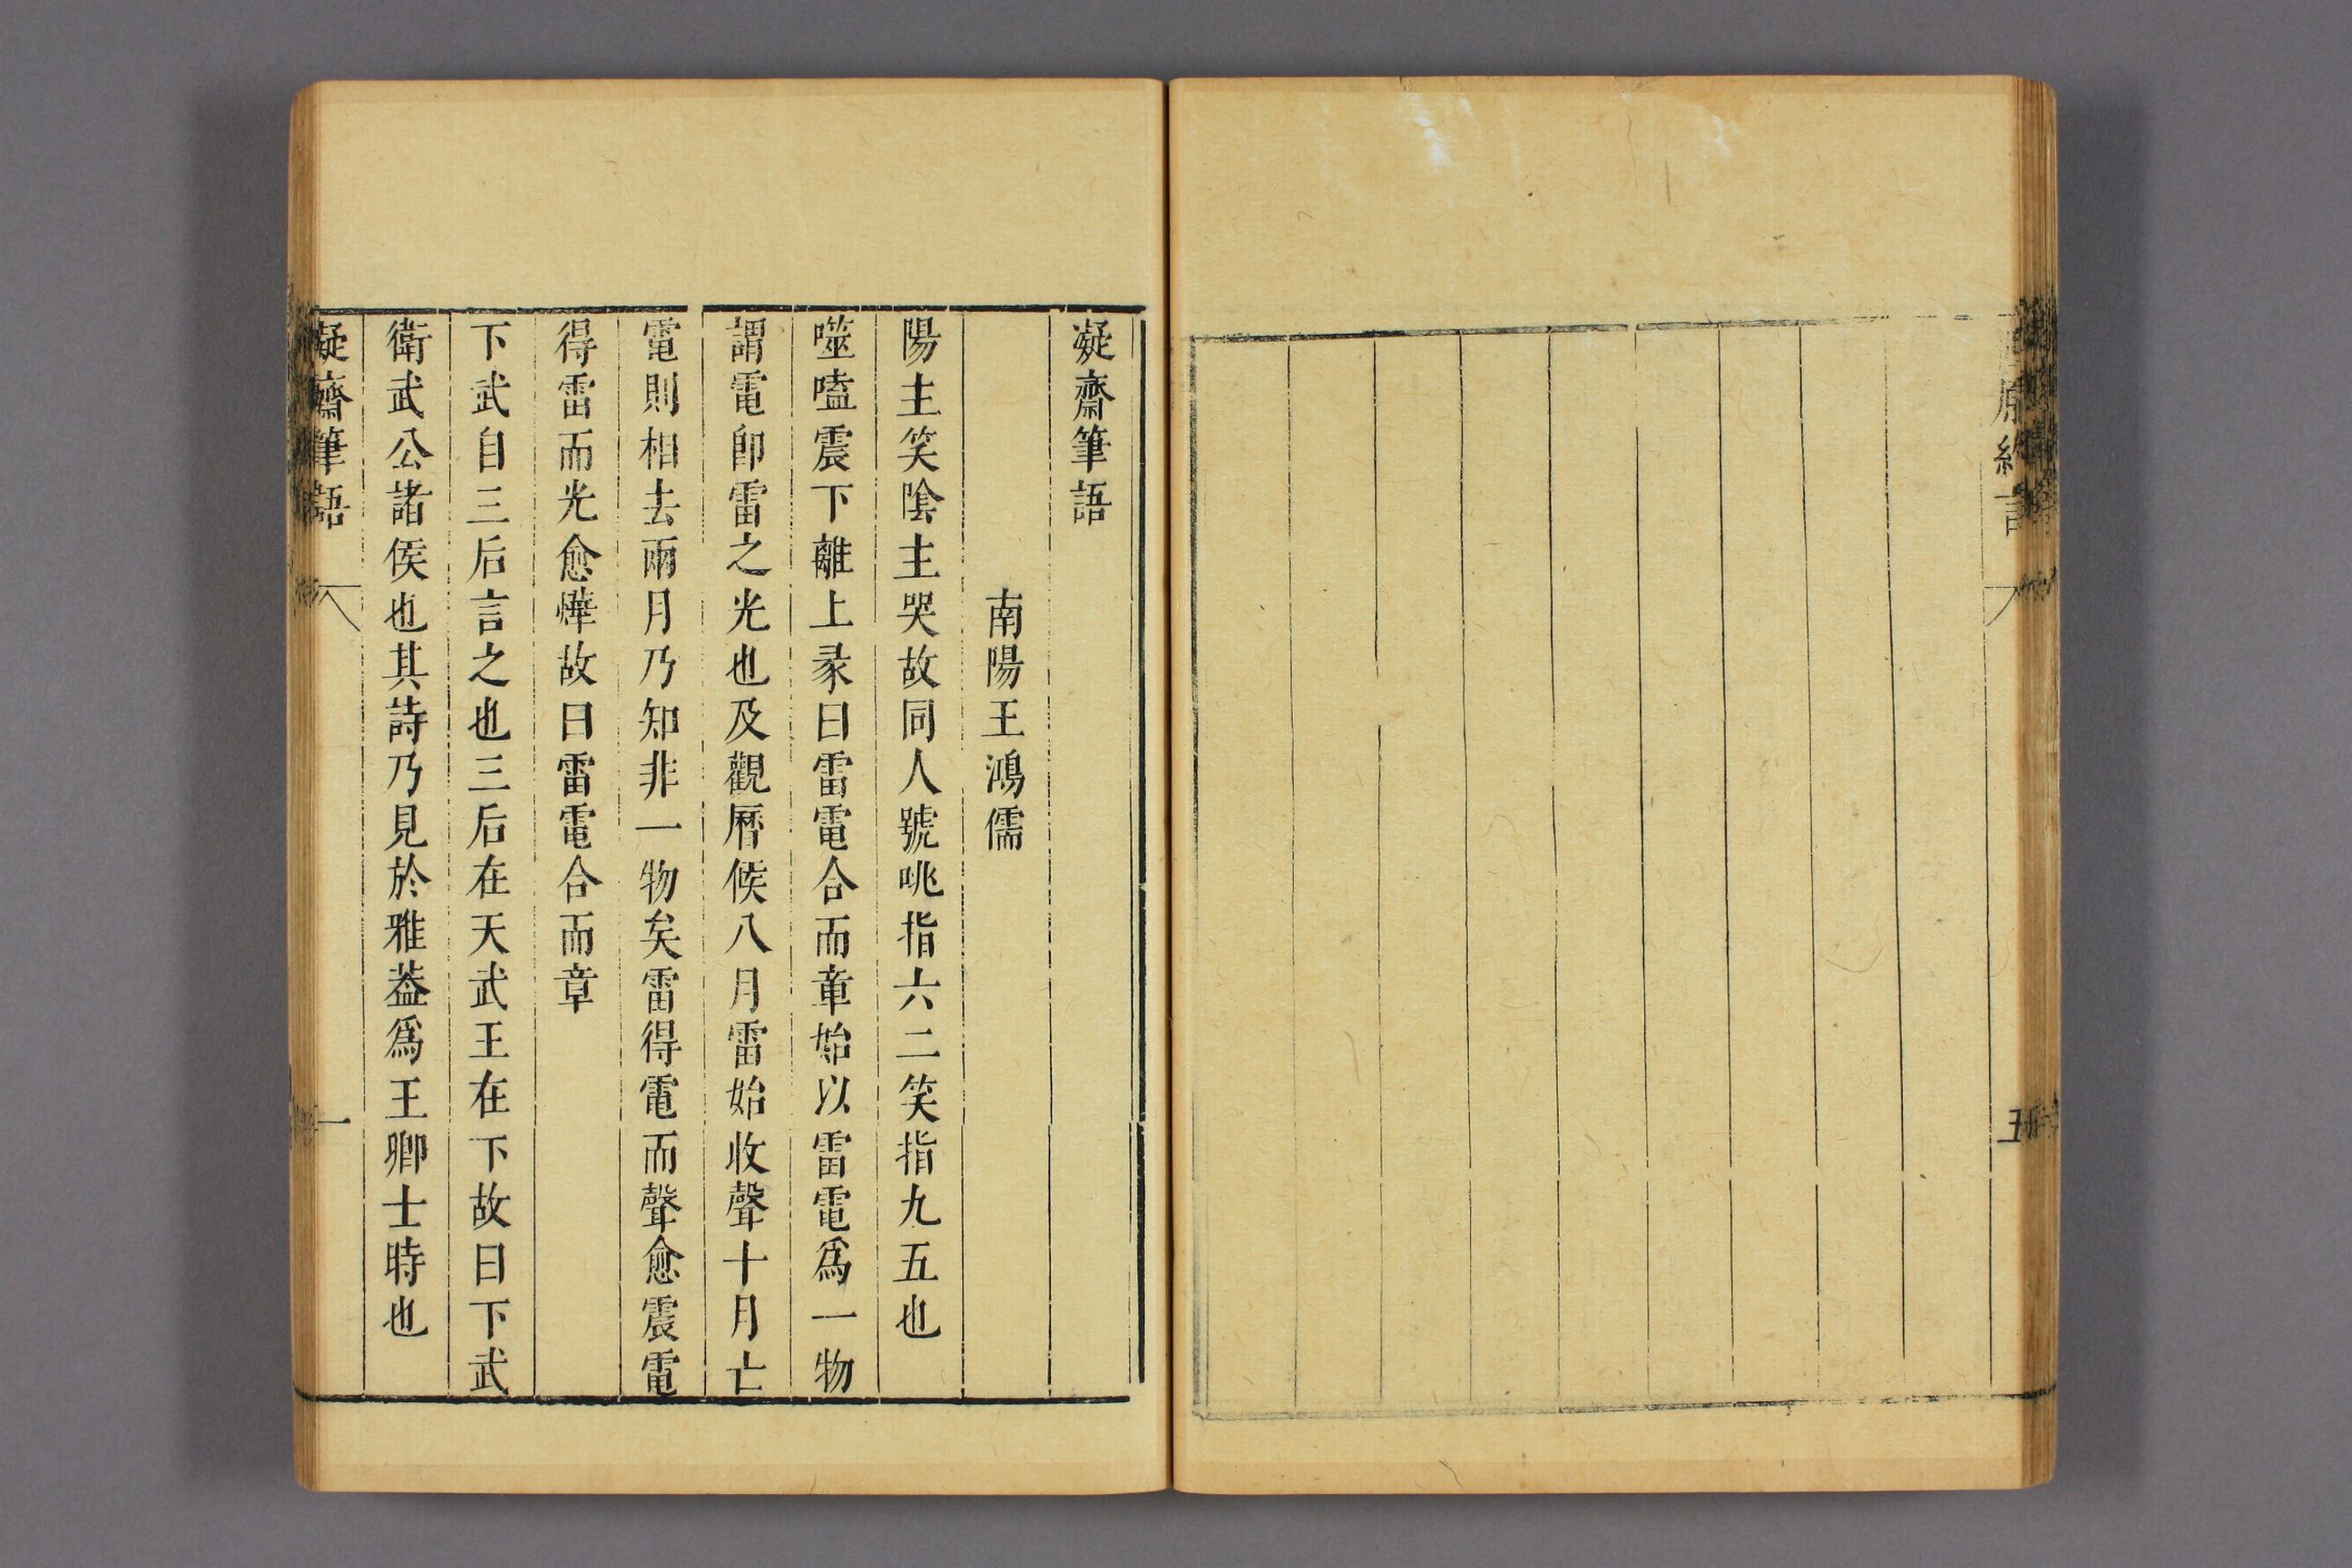 凝齋筆語
南陽王鴻儒
陽主笑陰主哭故同人號咷指六二笑指九五也
噬嗑震下離上彖曰雷電合而章始以雷電爲一物
謂電卽雷之光也及觀曆候八月雷始收聲十月亡
電則相去兩月乃知非一物矣雷得電而聲愈震電
得雷而光愈燁故曰雷電合而章
下武自三后言之也三后在天武王在下故曰下武
衛武公諸侯也其詩乃見於雅葢爲王卿士時也
凝齋筆語
一
原
五